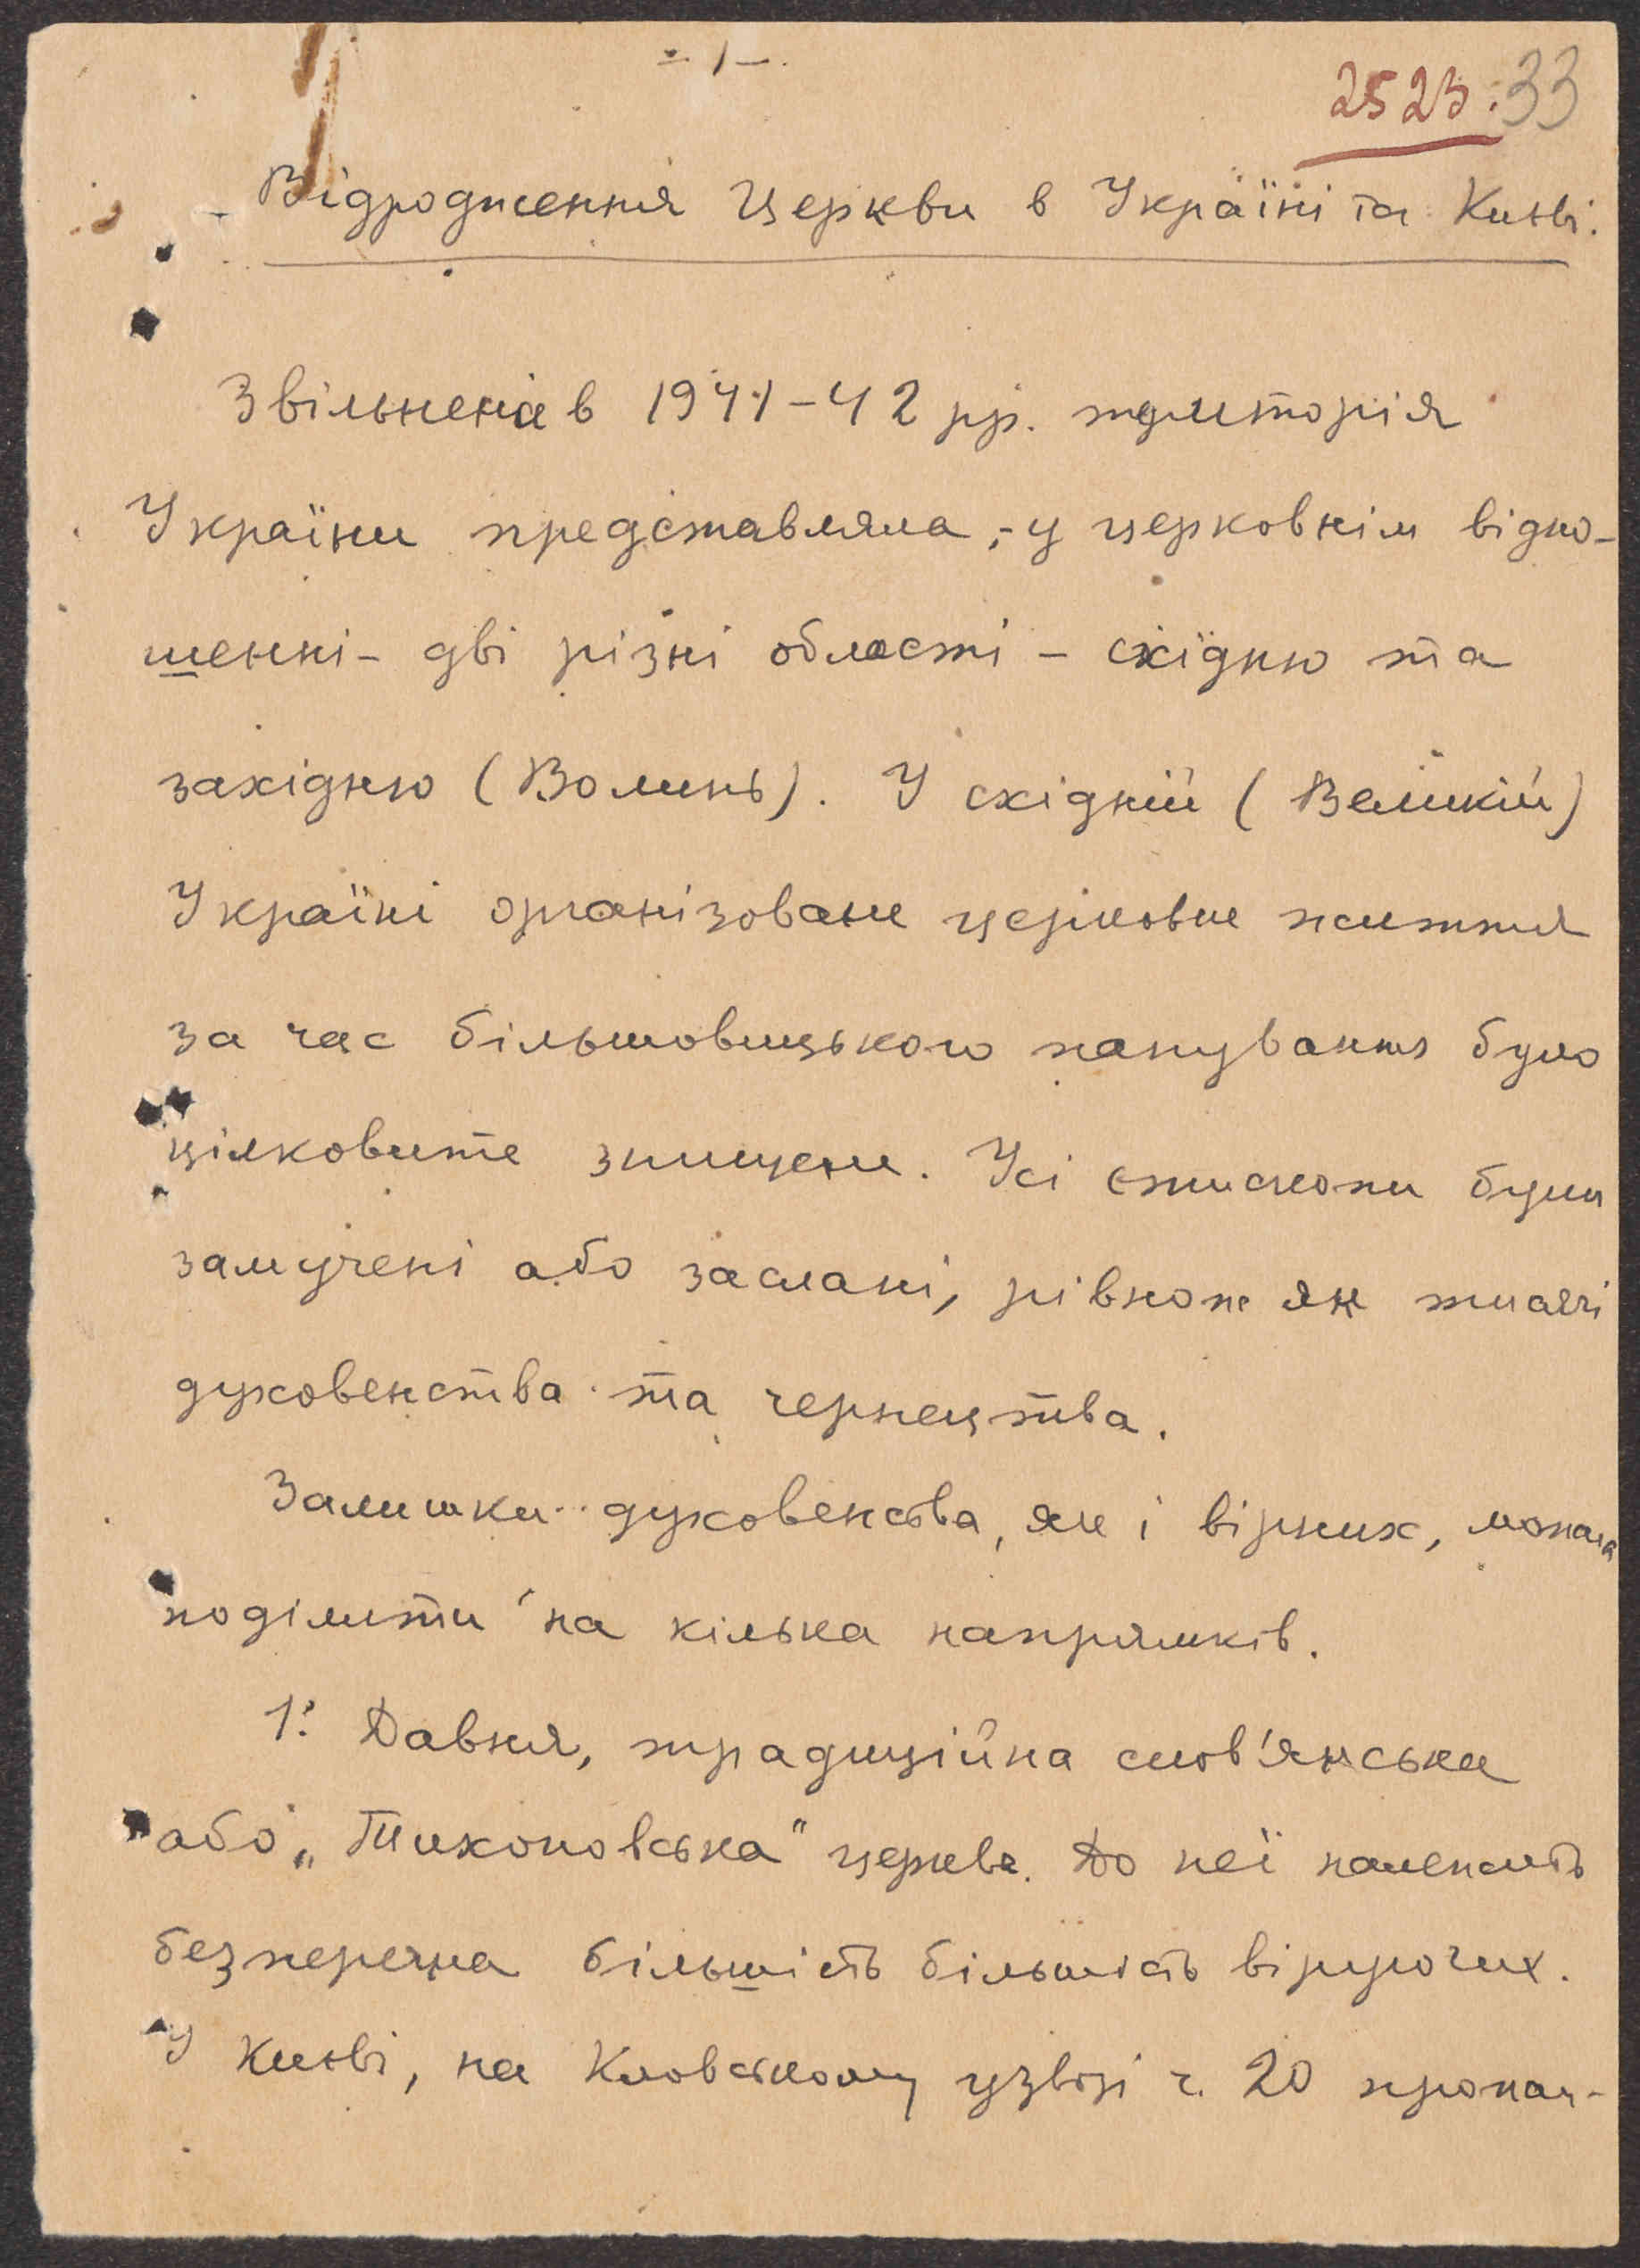 - 1 -
2523. 33
Відродження Церкви в Україні та Києві.
Звільнена в 1941-42 рр. територія
України представляла,- у церковнім відно-
шенні- дві різні області - східню та
західню (Волинь). У східній (Великій)
Україні організоване церковне життя
за час більшовицького панування було
цілковите знищене. Усі єпископи були
замучені або заслані, рівнож як тисячі
духовенства та чернецтва.
Залишки духовенства, як і вірних, можна
поділити на кілька напрямків.
1. Давня, традиційна слов'янська
або „Тихоновська" церква. До неї належить
безперечна більшість більшість віруючих.
У Києві, на Кловському узвозі ч. 20